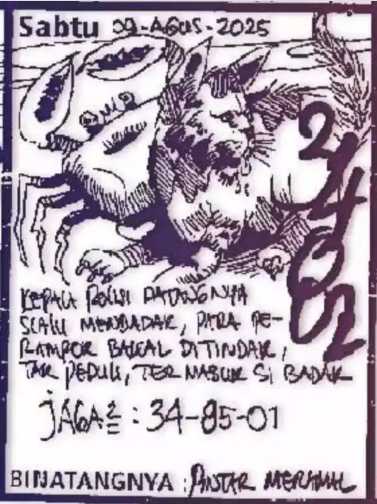 Sabtu 09-AGUS-2025
KEPALA POLISI DATANGNYA
SLALU MENDADAK, PARA PE-
RAMPOK BAKAL DITINDAK,
TAK PEDULI, TERMASUK SI BADAK
JAGA2 : 34-85-01
BINATANGNYA : PINTAR MERAMAL